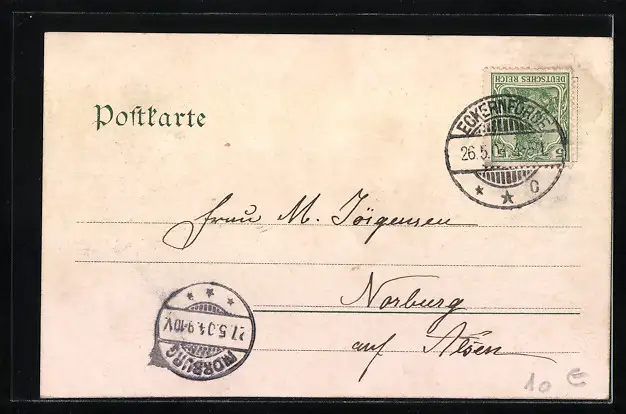 DEUTSCHES REICH
5
Postkarte
ECKERNFÖRDE
26.5.04
C
Frau M. Jörgensen
Norburg
auf Alsen
27.5.04.9-10V.
NORBURG
10 €